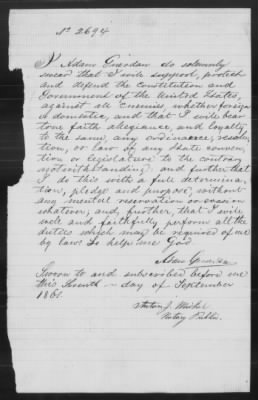 No 2694
I Adam Giesdam do solemnly
swear that I will support, protect
and defend the constitution and
Government of the United States,
against all enemies, whether foreign
or domestic, and that I will bear
true faith allegiance, and loyalty
to the same, any ordinance, resolu-
tion, or law of any State conven-
tion or legislature to the contrary
notwithstanding; and further that
I do this with a full determina-
tion, pledge and purpose, without
any mental reservation or evasion
whatever; and, further, that I will
well and faithfully perform all the
duties which may be required of me
by law. So help me God
Adam
Sworn to and subscribed before me
this Seventh day of September
1861.
J.
Notary Public.